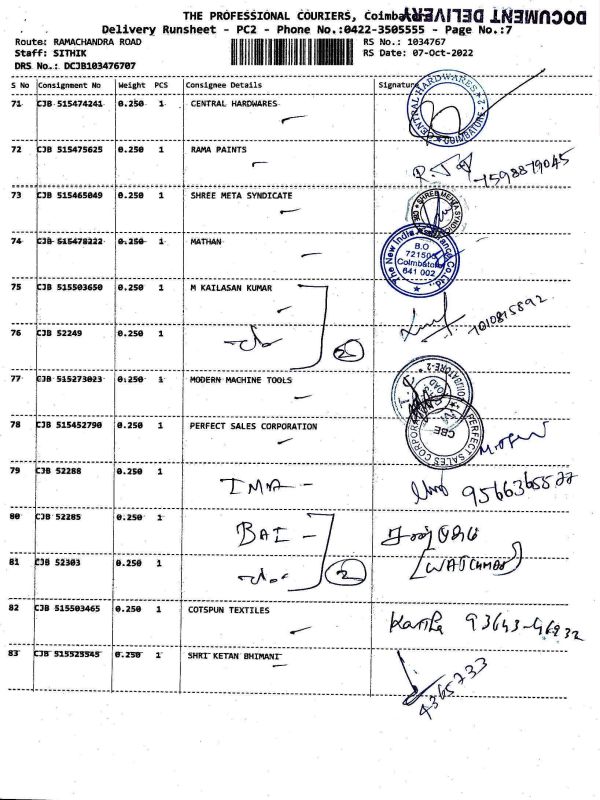 THE PROFESSIONAL COURIERS, Coimbatore
DOCUMENT DELIVERY
Delivery Runsheet - PC2 - Phone No.:0422-3505555 - Page No.:7
Route: RAMACHANDRA ROAD RS No.: 1034767
Staff: SITHIK RS Date: 07-Oct-2022
DRS No.: DCJB103476707
S No Consignment No Weight PCS Consignee Details Signature
71 CJB 515474241 0.250 1 CENTRAL HARDWARES
CENTRAL HARDWARES * COIMBATORE - 2
72 CJB 515475625 0.250 1 RAMA PAINTS
7598879045
73 CJB 515465049 0.250 1 SHREE META SYNDICATE
74 CJB 515478222 0.250 1 MATHAN
The New India Assurance Co. Ltd.,
B.O
721500
Coimbatore
641 002
75 CJB 515503650 0.250 1 M KAILASAN KUMAR
7010815892
76 CJB 52249 0.250 1 -do- 2
77 CJB 515273023 0.250 1 MODERN MACHINE TOOLS
78 CJB 515452790 0.250 1 PERFECT SALES CORPORATION
PERFECT SALES CORPORATION
CBE
79 CJB 52288 0.250 1 IMA - 9566365577
80 CJB 52285 0.250 1 BAI -
81 CJB 52303 0.250 1 -do- 2
82 CJB 515503465 0.250 1 COTSPUN TEXTILES
93643-46232
83 CJB 515525545 0.250 1 SHRI KETAN BHIMANI
4365733